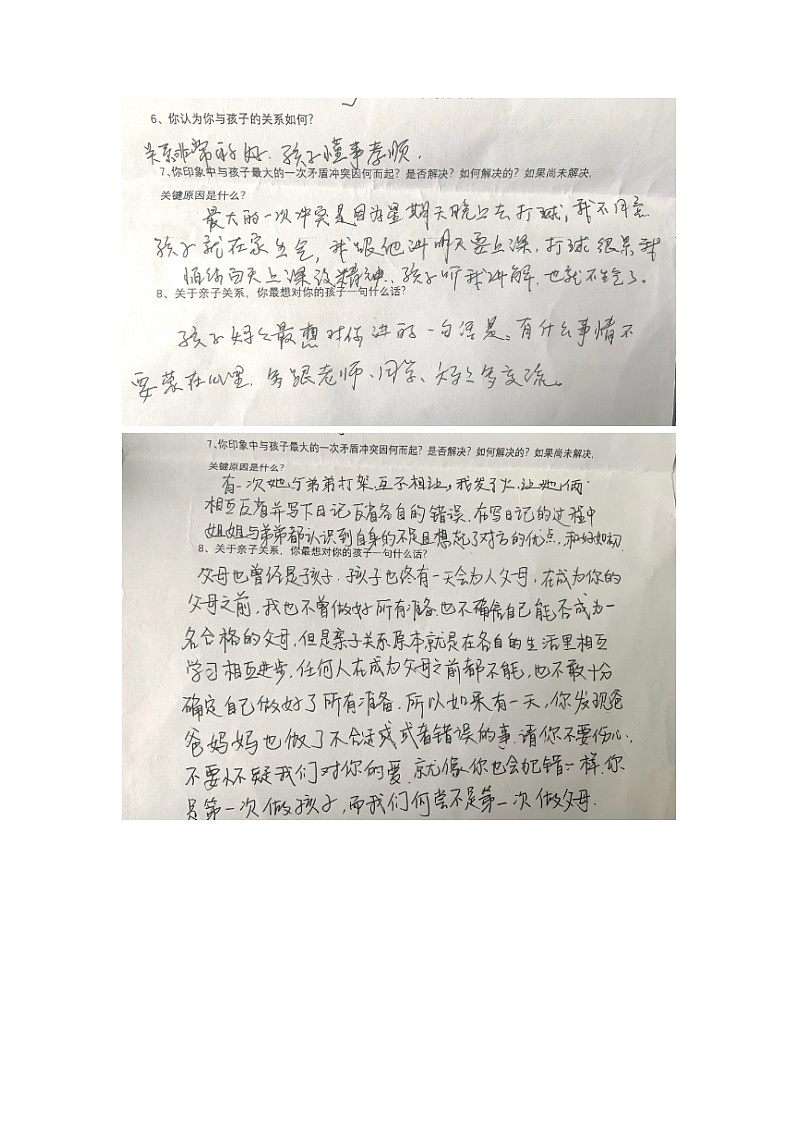 6、你认为你与孩子的关系如何?
关系非常的好. 孩子懂事孝顺.
7、你印象中与孩子最大的一次矛盾冲突因何而起? 是否解决? 如何解决的? 如果尚未解决,
关键原因是什么?
最大的一次冲突是因为星期天晚上去打球, 我不同意
孩子就在家生气, 我跟他讲明天要上课, 打球很累我
怕你白天上课没精神. 孩子听我讲解. 也就不生气了。
8、关于亲子关系, 你最想对你的孩子一句什么话?
孩子妈妈最想对你讲的一句话是: 有什么事情不
要蒙在心里. 多跟老师、同学、妈妈多交流。
7、你印象中与孩子最大的一次矛盾冲突因何而起? 是否解决? 如何解决的? 如果尚未解决,
关键原因是什么?
有一次她与弟弟打架互不相让, 我发了火, 让她俩
相互反省并写下日记反省各自的错误. 在写日记的过程中
姐姐与弟弟都认识到自身的不足且想起了对方的优点, 和好如初.
8、关于亲子关系, 你最想对你的孩子一句什么话?
父母也曾经是孩子. 孩子也终有一天会为人父母, 在成为你的
父母之前, 我也不曾做好所有准备. 也不确信自己能否成为一
名合格的父母, 但是亲子关系原本就是在各自的生活里相互
学习相互进步. 任何人在成为父母之前都不能, 也不敢十分
确定自己做好了所有准备. 所以如果有一天, 你发现爸
爸妈妈也做了不合适或或者错误的事. 请你不要伤心.
不要怀疑我们对你的爱. 就像你也会犯错一样. 你
是第一次做孩子, 而我们何尝不是第一次做父母.